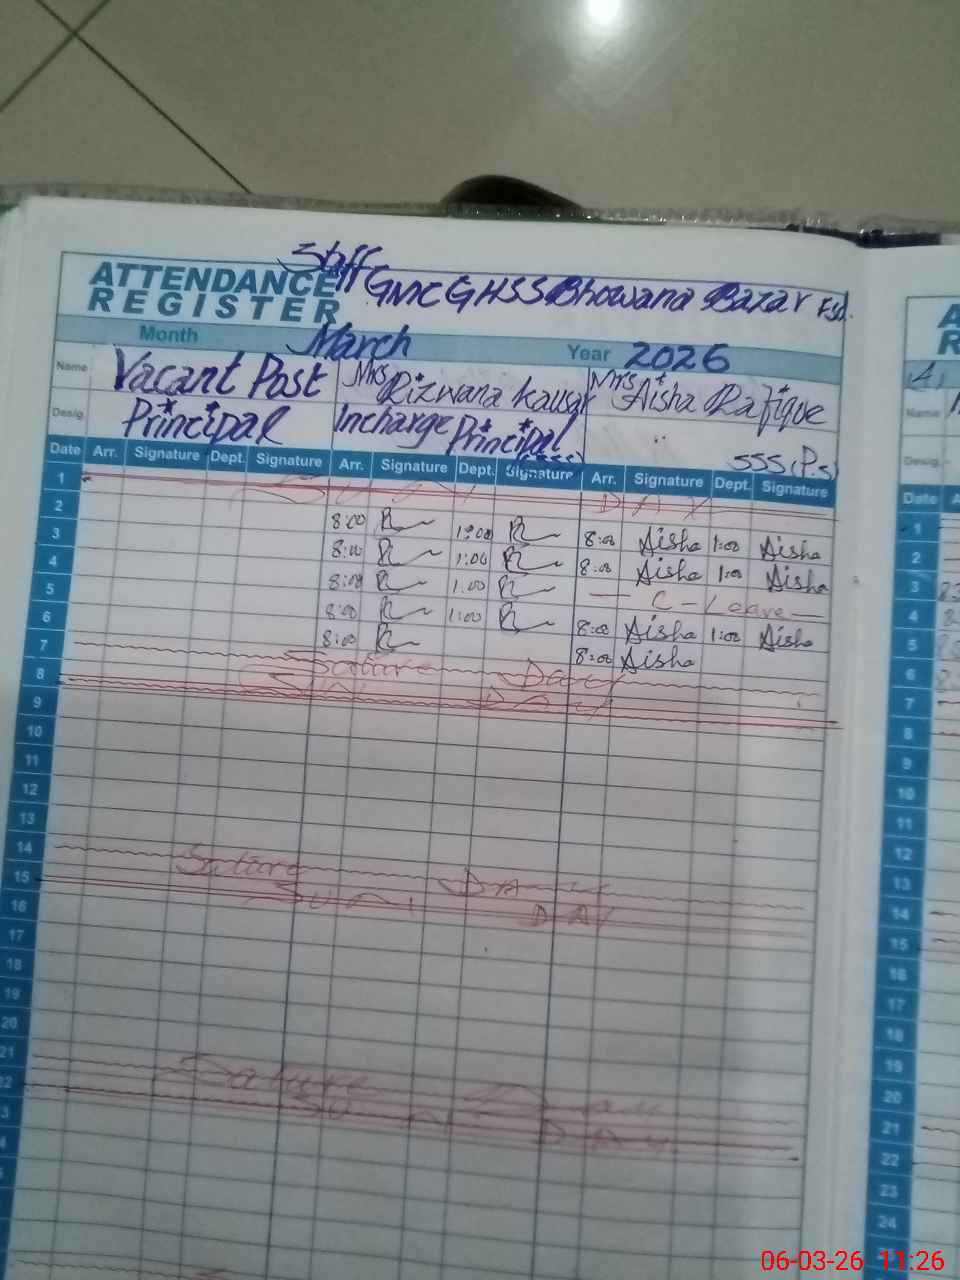 Staff GMC GHSS Bhowana Bazar Fsd.
ATTENDANCE
REGISTER
Month March Year 2026
Name Vacant Post Mrs Rizwana Kausar Mrs Aisha Rafique
Desig. Principal Incharge Principal (SSS) SSS (P.S)
Date Arr. Signature Dept. Signature Arr. Signature Dept. Signature Arr. Signature Dept. Signature
1 SUN DAY
2 8:00 1:00 8:00 Aisha 1:00 Aisha
3 8:00 1:00 8:00 Aisha 1:00 Aisha
4 8:00 1:00 C-Leave
5 8:00 1:00 8:00 Aisha 1:00 Aisha
6 8:00 8:00 Aisha
7 Day
8 SUN DAY
9
10
11
12
13
14
15 SUN DAY
16
17
18
19
20
21 Day
22 SUN DAY
23
Name
Desig.
Date
1
2
3
4
5
6
7
8
9
10
11
12
13
14
15
16
17
18
19
20
21
22
23
24
06-03-26 11:26